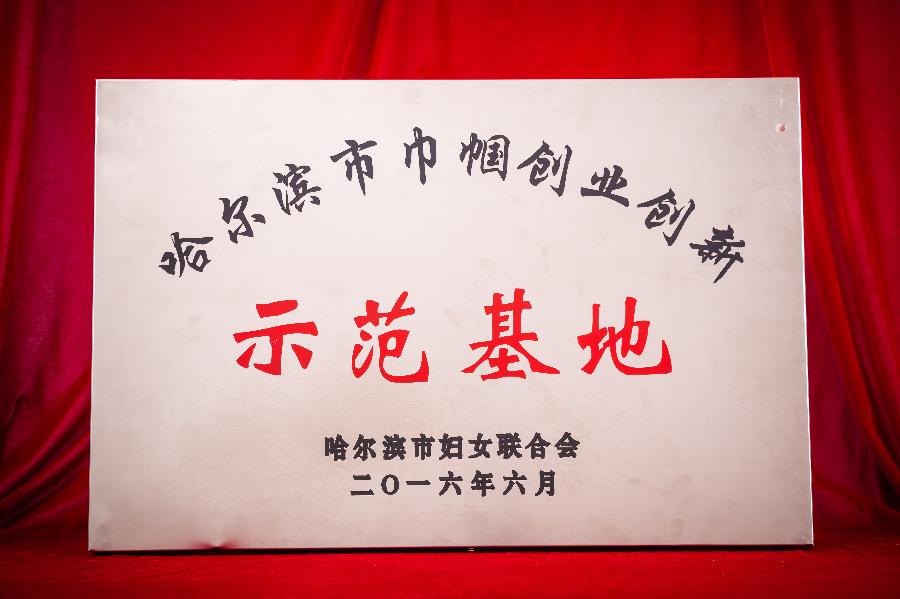 哈尔滨市巾帼创业创新
示范基地
哈尔滨市妇女联合会
二〇一六年六月